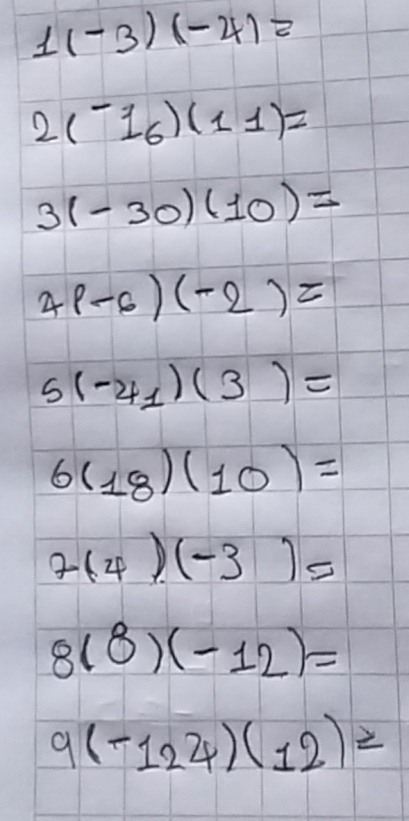 1(-3)(-4)=
2(-16)(11)=
3(-30)(10)=
4(-6)(-2)=
5(-41)(3)=
6(18)(10)=
7(4)(-3)=
8(8)(-12)=
9(-124)(12)=